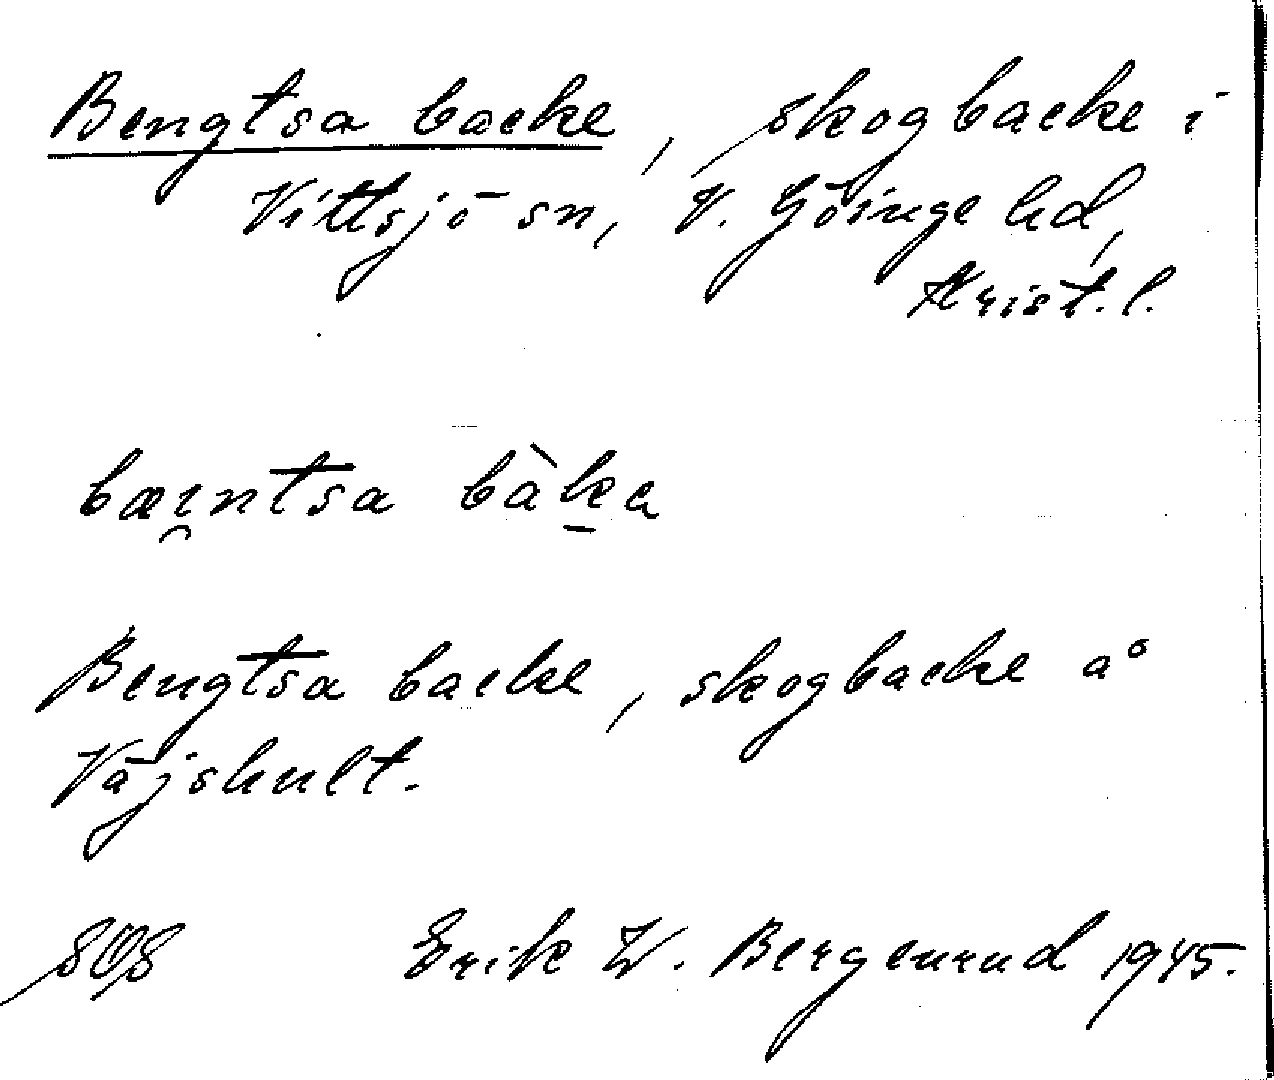 Bengtsa backe, skogbacke i
Vittsjö sn, V. Göinge hd,
Krist. l.
bæi̯ntsa bàk̠a
Bengtsa backe, skogbacke å
Väjshult.
808 Erik W. Bergenrud 1945.